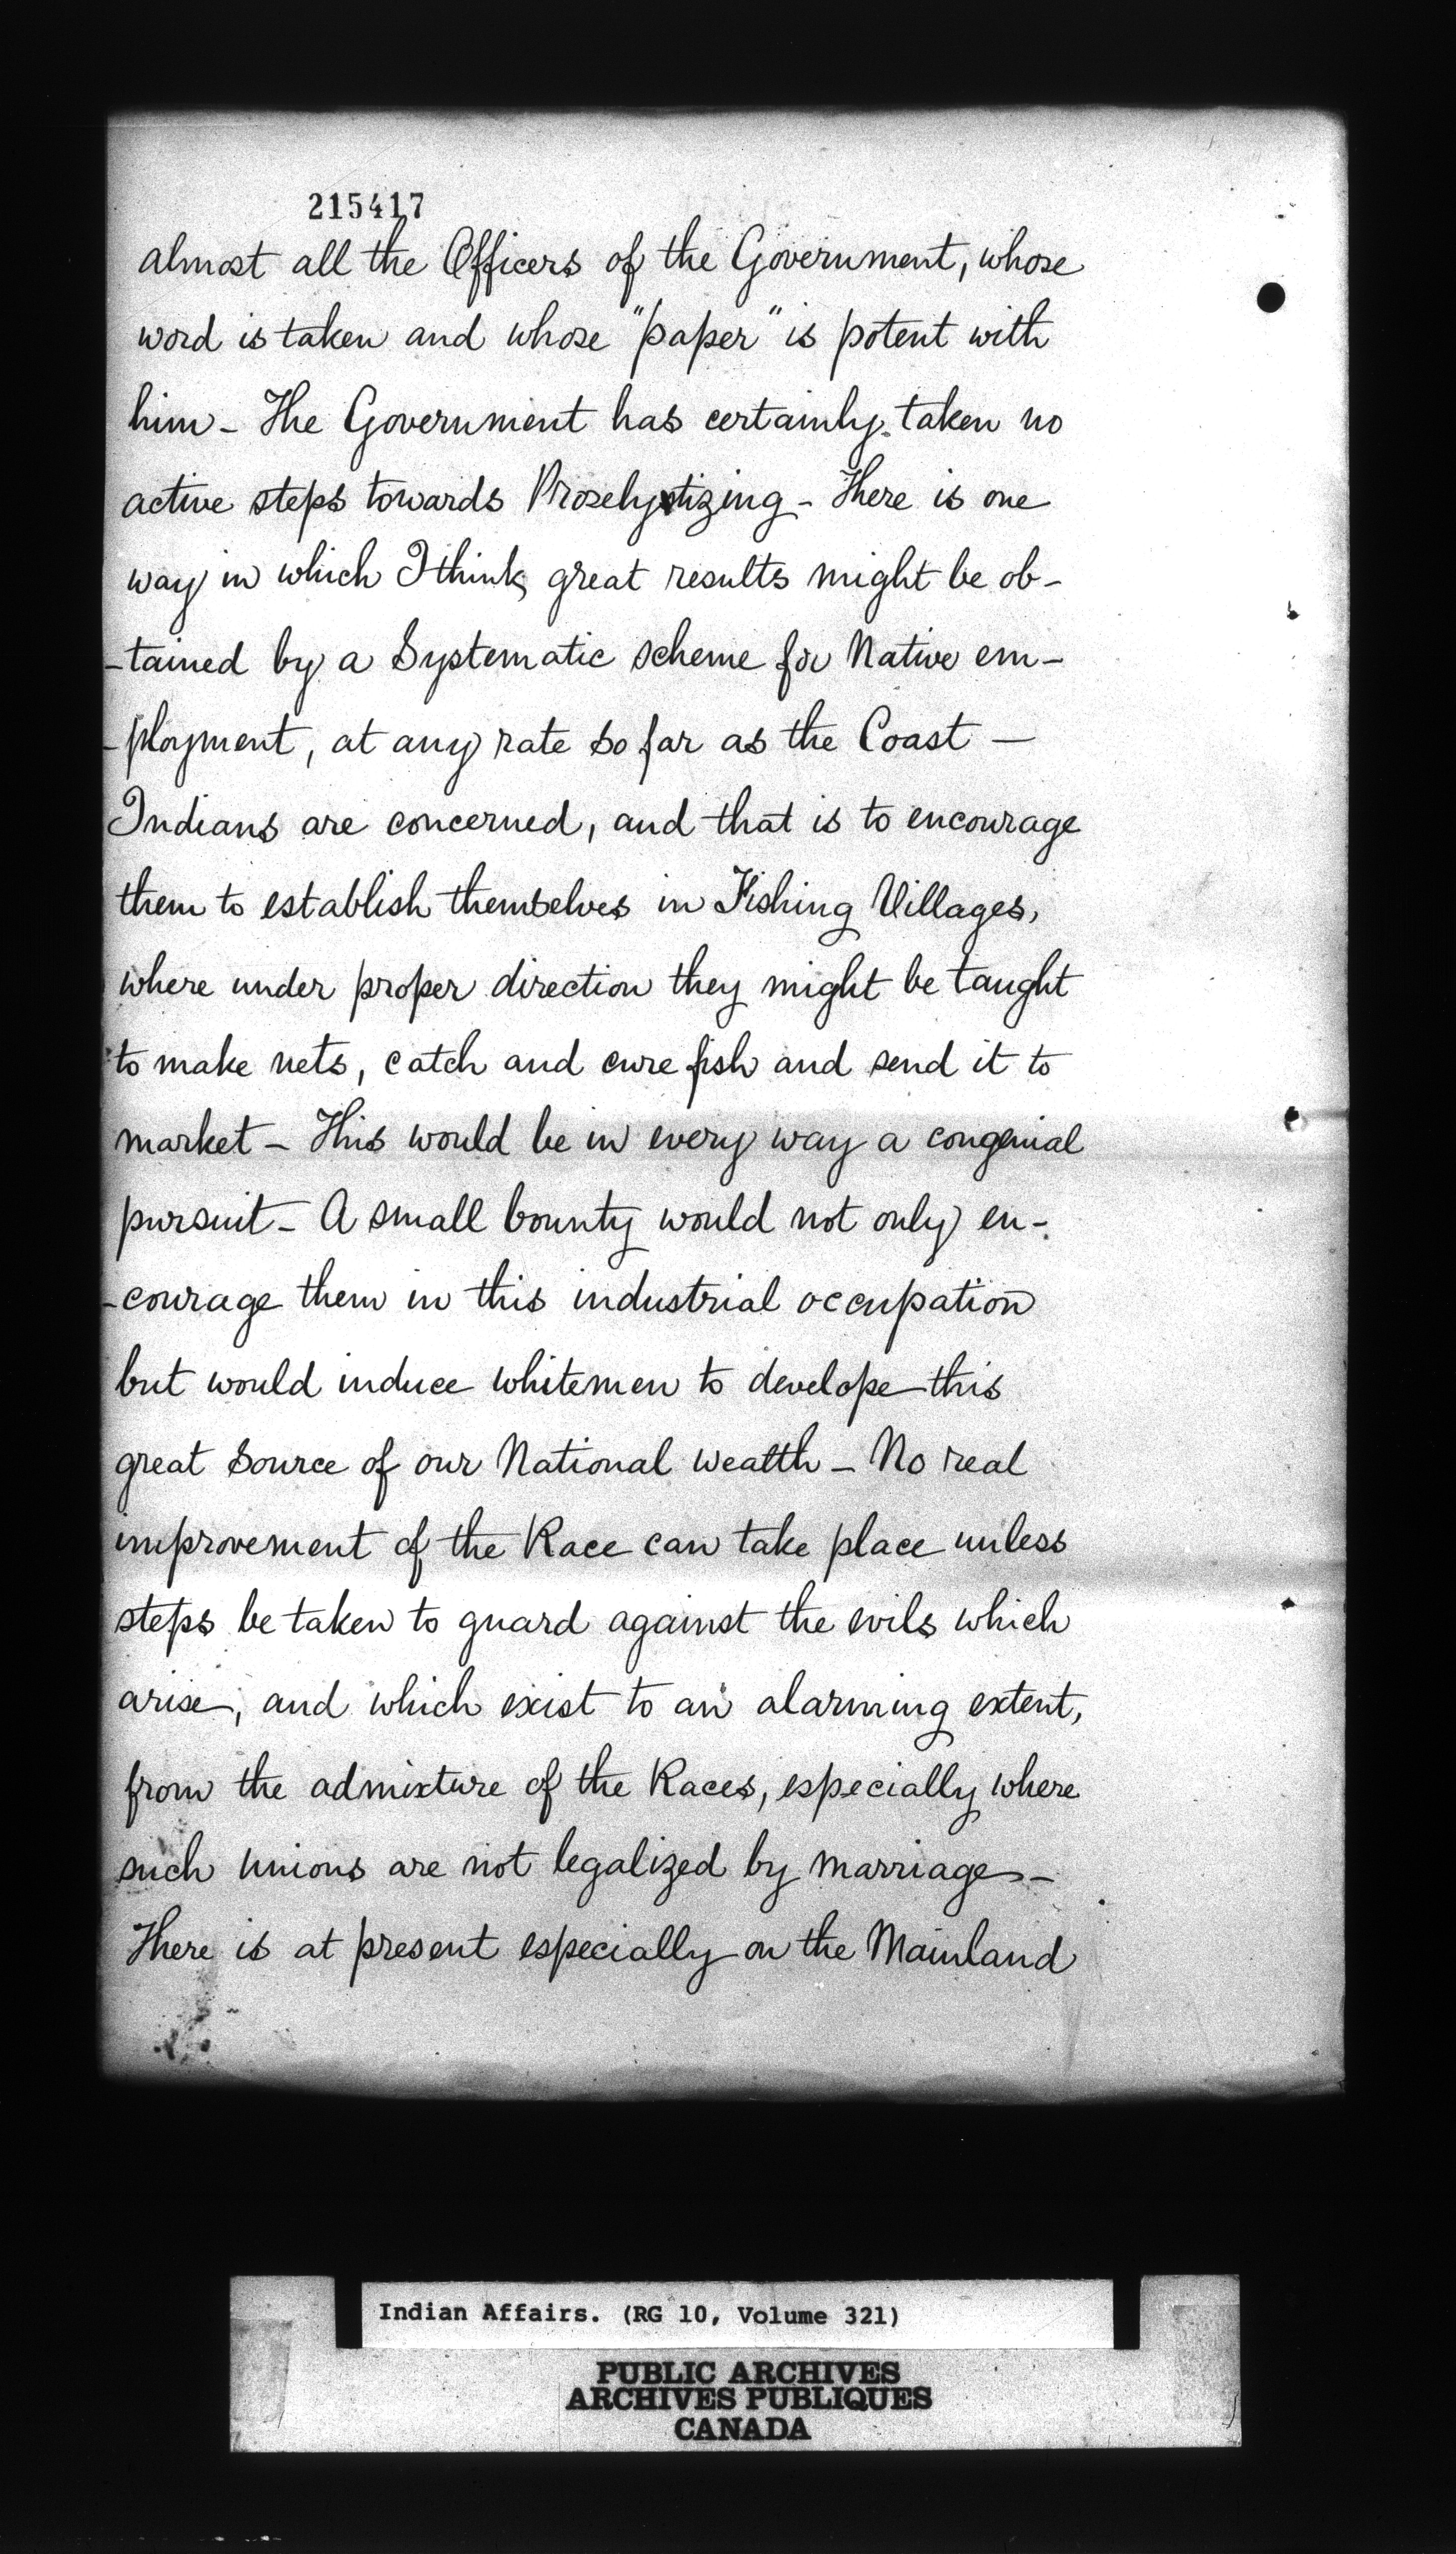 215417
almost all the Officers of the Government, whose
word is taken and whose "paper" is potent with
him - The Government has certainly taken no
active steps towards Proselytizing - There is one
way in which I think great results might be ob-
-tained by a Systematic scheme for Native em-
-ployment, at any rate so far as the Coast —
Indians are concerned, and that is to encourage
them to establish themselves in Fishing Villages,
where under proper direction they might be taught
to make nets, catch and cure fish and send it to
market - This would be in every way a congenial
pursuit - A small bounty would not only en-
-courage them in this industrial occupation
but would induce whitemen to develope this
great Source of our National wealth - No real
improvement of the Race can take place unless
steps be taken to guard against the evils which
arise, and which exist to an alarming extent,
from the admixture of the Races, especially where
such unions are not legalized by marriage -
There is at present especially on the Mainland
Indian Affairs. (RG 10, Volume 321)
PUBLIC ARCHIVES
ARCHIVES PUBLIQUES
CANADA